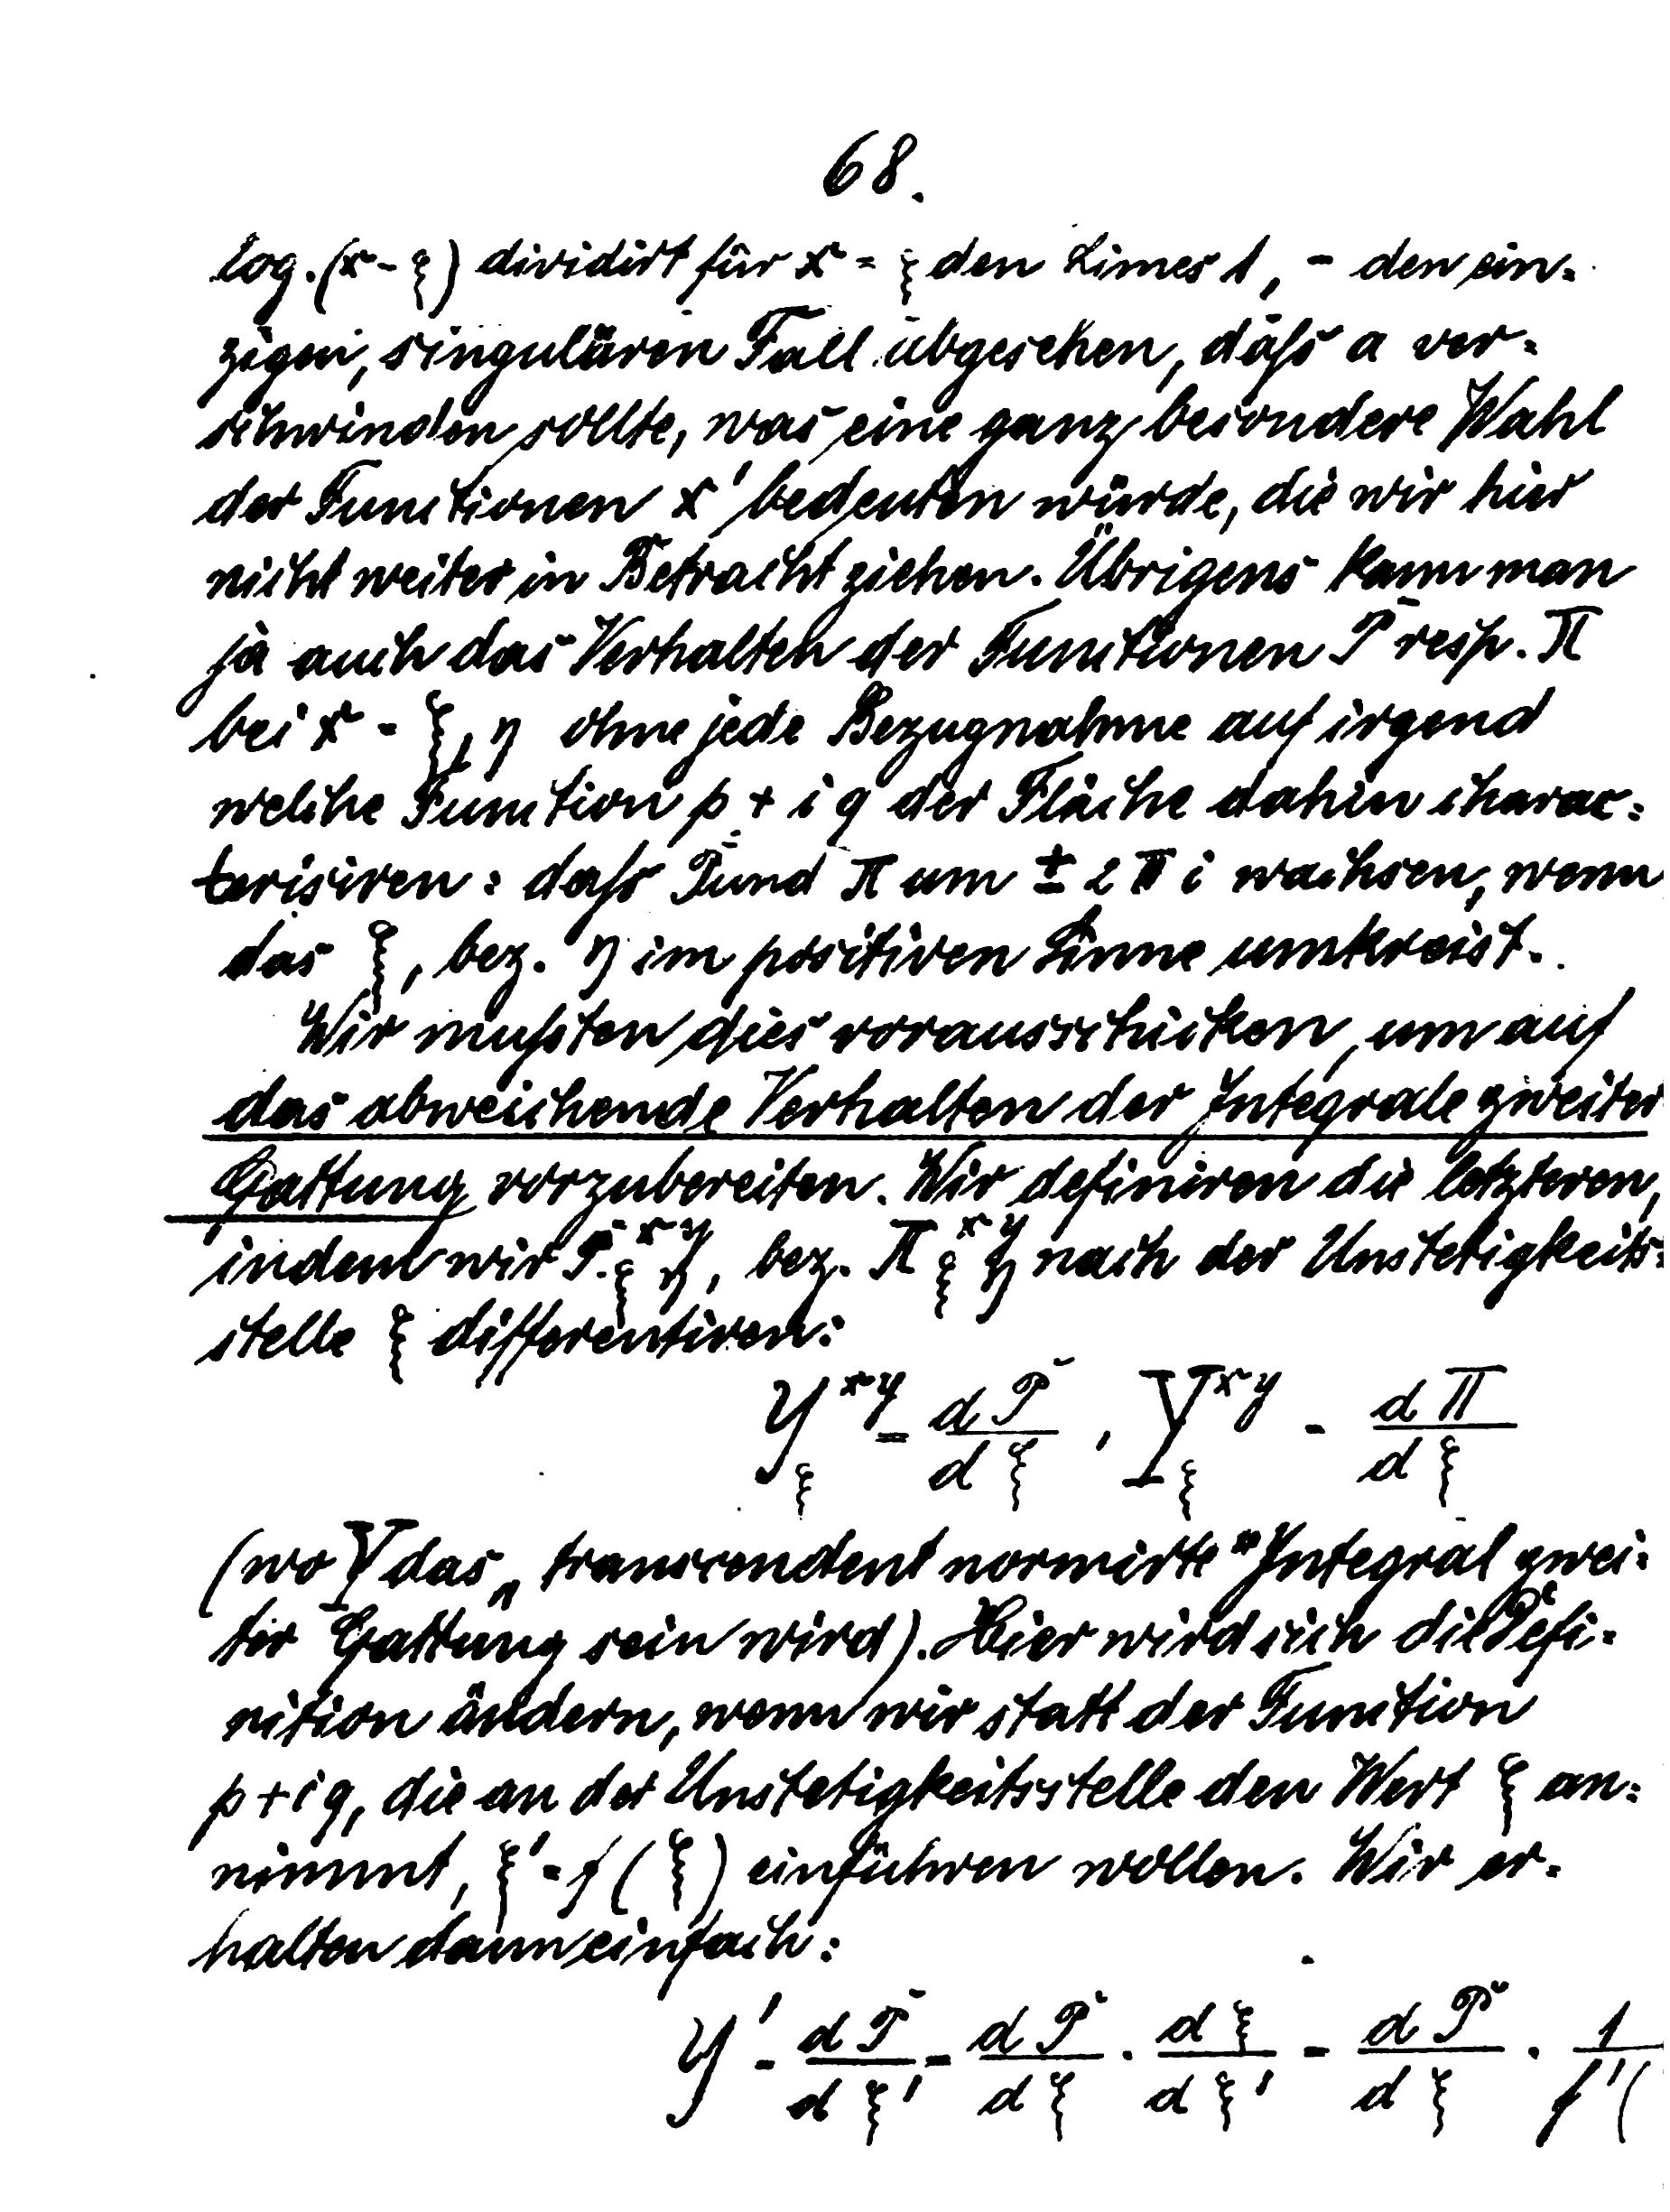 68.
log. (x - ξ) dividirt für x = ξ den Limes 1, - den ein=
zigen, singulären Fall abgesehen, daſs a ver=
schwinden sollte, was eine ganz besondere Wahl
der Functionen x' bedeuten würde, die wir hier
nicht weiter in Betracht ziehen. Übrigens kann man
ja auch das Verhalten der Functionen P resp. Π
bei x = ξ, η ohne jede Bezugnahme auf irgend
welche Function p + i q der Fläche dahin charac=
terisiren: daſs P und Π um ± 2 π i wachsen, wenn
das ξ, bez. η im positiven Sinne umkreist.
Wir muſsten dies vorausschicken, um auf
das abweichende Verhalten der Integrale zweiter
Gattung vorzubereiten. Wir definiren die letzteren,
indem wir P^{xy}_{ξη}, bez. Π^{xy}_{ξη} nach der Unstetigkeits=
stelle ξ differentiren:
Y^{xy}_ξ = dP/dξ, Υ^{xy}_ξ = dΠ/dξ
(wo Υ das „transcendent normirte" Integral zwei=
ter Gattung sein wird). Hier wird sich die Defi=
nition ändern, wenn wir statt der Function
p + i q, die an der Unstetigkeitsstelle den Wert ξ an=
nimmt, ξ' = f (ξ) einführen wollen. Wir er=
halten dann einfach:
Y' = dP/dξ' = dP/dξ · dξ/dξ' = dP/dξ · 1/f'(